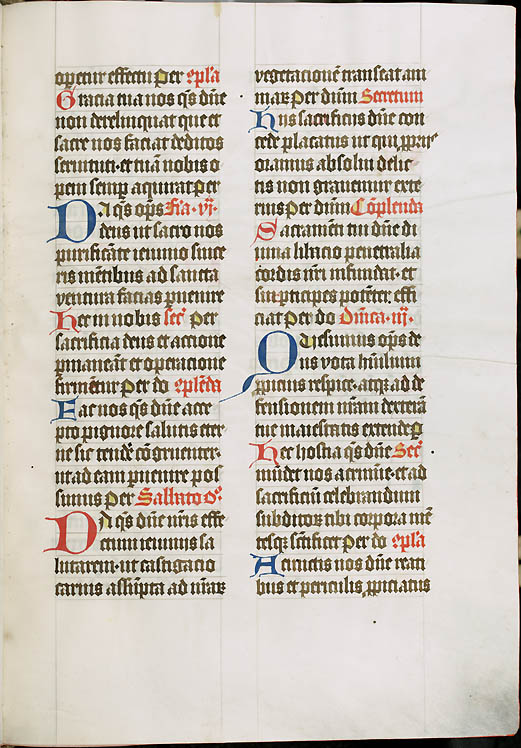 operetur effectu per epl̄a
Gracia tua nos qs̄ dn̄e
non derelinquat que et
sacre nos faciat deditos
seruituti · et tuā nobis o
pem semp̄ aquirat per
DA qs̄ op̄s Fīa · vj ·
deus ut sacro nos
purificāte ieiunio since
ris mētibus ad sancta
ventura facias p̄uenire
Hec in nobis sec̄ per
sacrificia deus et accione
pmaneāt et operacione
firmētur per do eplēda
Fac nos qs̄ dn̄e acce
pto pignore salutis eter
ne sic tendē cōgruenter ·
ut ad eam puenire pos
simus per Sabbato o°
DA qs̄ dn̄e nr̄is effe
ctum ieiuniis sa
lutarem · ut castigacio
carnis assūpta ad nr̄arū
vegetacionē transeat ani
marū per dn̄m Secretum
Hijs sacrificiis dn̄e con
cede placatus ut qui ppriis
oramus absolui delic
tis non grauemur exte
rius per dn̄m Cōplenda
Sacramēti tui dn̄e di
uina libacio penetralia
cordis nr̄i infundat · et
sui pticipes potēter effi
ciat per do Dn̄ica · iij ·
Quesumus op̄s de
us vota hūilium
ppicius respice · atqꝫ ad de
fensionem nr̄am dexterā
tue maiestatis extende p
Hec hostia qs̄ dn̄e Sec̄
mūdet nos a crimīe · et ad
sacrificiū celebrandum
subditoꝝ tibi corpora mēt
tesqꝫ sc̄tificet per do epl̄a
A cunctis nos dn̄e reati
bus et periculis ppiciatus